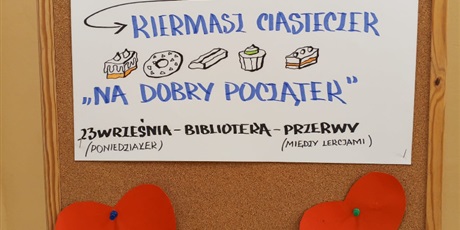 KIERMASZ CIASTECZEK
„NA DOBRY POCZĄTEK”
23 WRZEŚNIA - BIBLIOTEKA - PRZERWY
(PONIEDZIAŁEK) (MIĘDZY LEKCJAMI)